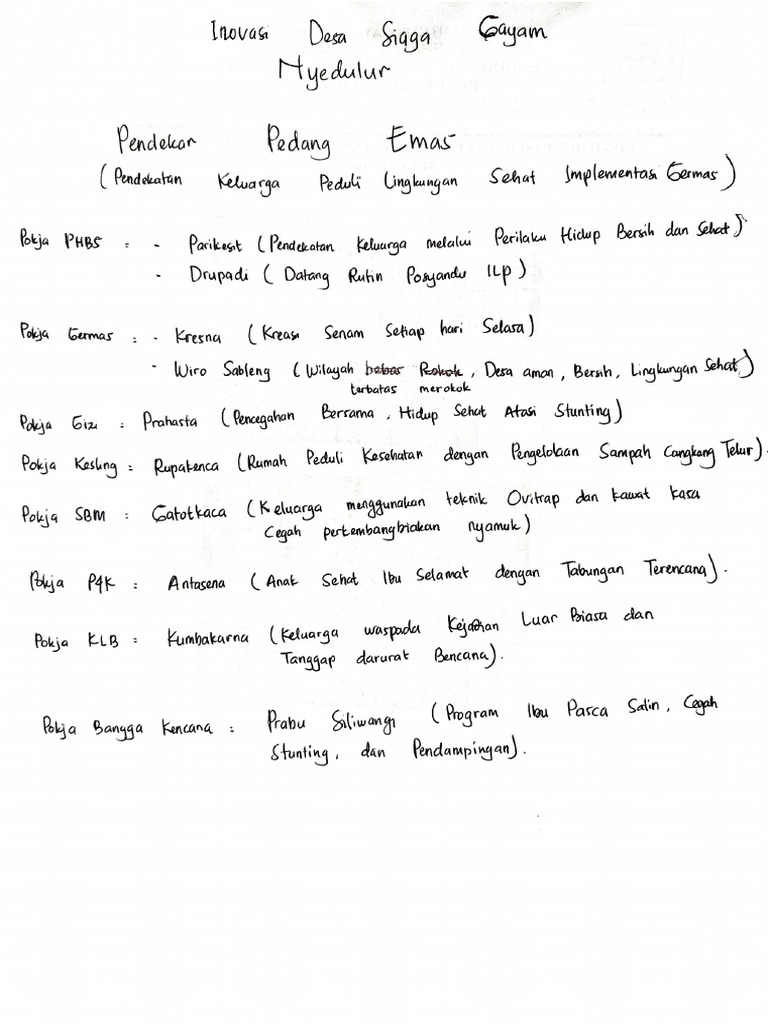 Inovasi Desa Siaga Gayam
Nyedulur
Pendekar Pedang Emas
(Pendekatan Keluarga Peduli Lingkungan Sehat Implementasi Germas)
Pokja PHBS : - Parikesit (Pendekatan Keluarga melalui Perilaku Hidup Bersih dan Sehat)
- Drupadi (Datang Rutin Posyandu ILP)
Pokja Germas : - Kresna (Kreasi Senam Setiap hari Selasa)
- Wiro Sableng (Wilayah bebas Rokok, Desa aman, Bersih, Lingkungan Sehat)
terbatas merokok
Pokja Gizi : Prahasta (Pencegahan Bersama, Hidup Sehat Atasi Stunting)
Pokja Kesling : Rupakenca (Rumah Peduli Kesehatan dengan Pengelolaan Sampah Cangkang Telur).
Pokja SBM : Gatotkaca (Keluarga menggunakan teknik Ovitrap dan kawat kasa
Cegah pertembangbiakan nyamuk)
Pokja P4K : Antasena (Anak Sehat Ibu Selamat dengan Tabungan Terencana).
Pokja KLB : Kumbakarna (Keluarga waspada Kejadian Luar Biasa dan
Tanggap darurat Bencana).
Pokja Bangga Kencana : Prabu Siliwangi (Program Ibu Pasca Salin, Cegah
Stunting, dan Pendampingan).